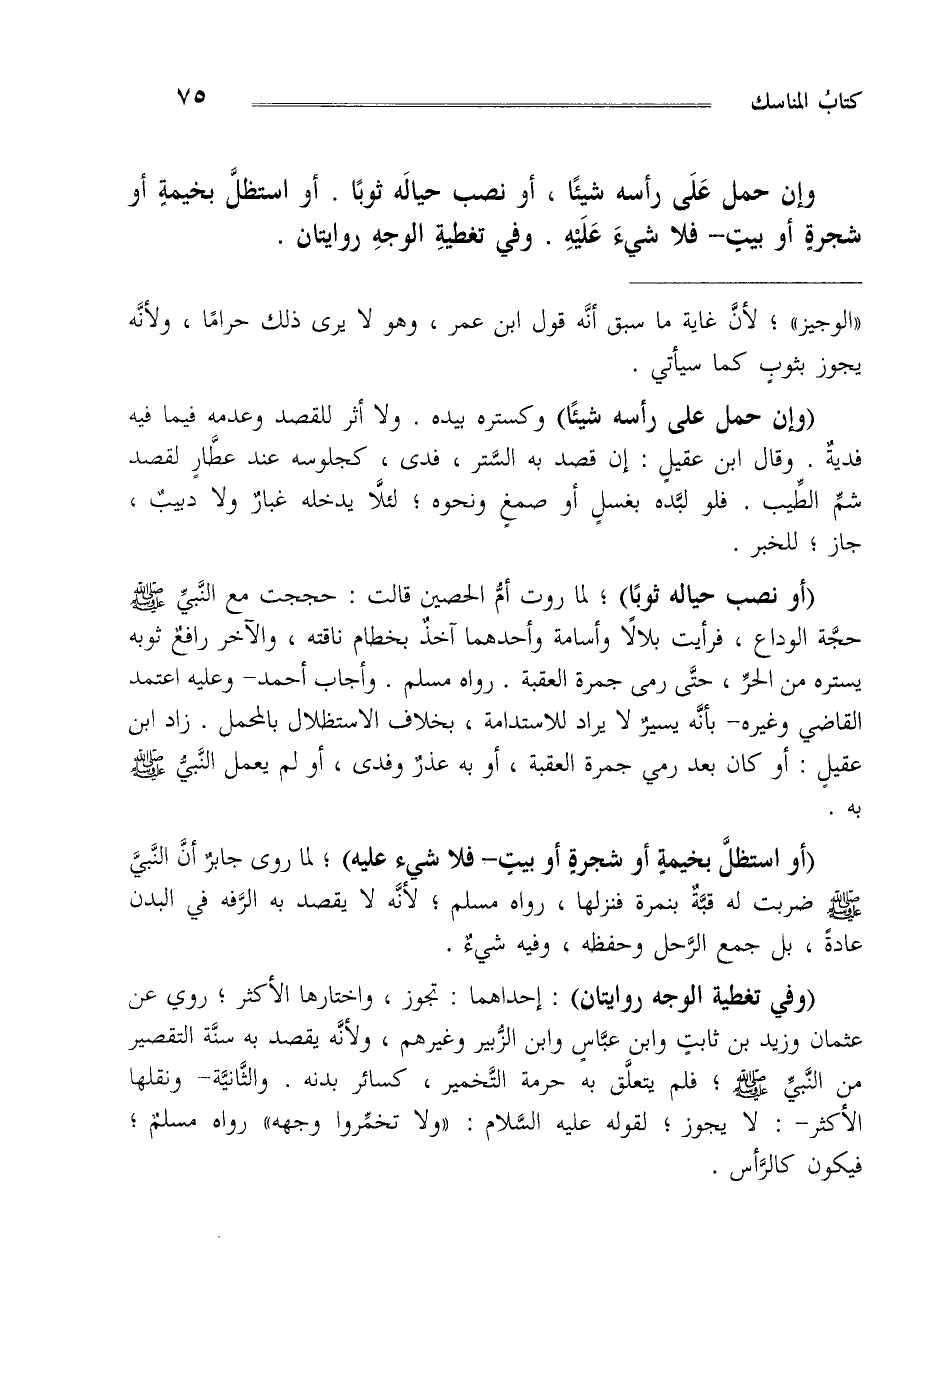 كتابُ المناسك ٧٥
وإن حمل عَلَى رأسه شيئًا ، أو نصب حيالَه ثوبًا . أو استظلَّ بخيمةٍ أو
شجرةٍ أو بيتٍ– فلا شيءَ عَلَيْهِ . وفي تغطيةِ الوجهِ روايتان .
«الوجيز» ؛ لأنَّ غاية ما سبق أنَّه قول ابن عمر ، وهو لا يرى ذلك حرامًا ، ولأنَّه
يجوز بثوبٍ كما سيأتي .
(وإن حمل على رأسه شيئًا) وكستره بيده . ولا أثر للقصد وعدمه فيما فيه
فديةٌ . وقال ابن عقيلٍ : إن قصد به السَّتر ، فدى ، كجلوسه عند عطَّارٍ لقصد
شمِّ الطِّيب . فلو لبَّده بغسلٍ أو صمغٍ ونحوه ؛ لئلَّا يدخله غبارٌ ولا دبيبٌ ،
جاز ؛ للخبر .
(أو نصب حياله ثوبًا) ؛ لما روت أمُّ الحصين قالت : حججت مع النَّبيِّ ﷺ
حجَّة الوداع ، فرأيت بلالًا وأسامة وأحدهما آخذٌ بخطام ناقته ، والآخر رافعٌ ثوبه
يستره من الحرِّ ، حتَّى رمى جمرة العقبة . رواه مسلم . وأجاب أحمد– وعليه اعتمد
القاضي وغيره– بأنَّه يسيرٌ لا يراد للاستدامة ، بخلاف الاستظلال بالمحمل . زاد ابن
عقيلٍ : أو كان بعد رمي جمرة العقبة ، أو به عذرٌ وفدى ، أو لم يعمل النَّبيُّ ﷺ
به .
(أو استظلَّ بخيمةٍ أو شجرةٍ أو بيتٍ– فلا شيء عليه) ؛ لما روى جابرٌ أنَّ النَّبيَّ
ﷺ ضربت له قبَّةٌ بنمرة فنزلها ، رواه مسلم ؛ لأنَّه لا يقصد به الرَّفه في البدن
عادةً ، بل جمع الرَّحل وحفظه ، وفيه شيءٌ .
(وفي تغطية الوجه روايتان) : إحداهما : تجوز ، واختارها الأكثر ؛ روي عن
عثمان وزيد بن ثابتٍ وابن عبَّاسٍ وابن الزُّبير وغيرهم ، ولأنَّه يقصد به سنَّة التقصير
من النَّبيِّ ﷺ ؛ فلم يتعلَّق به حرمة التَّخمير ، كسائر بدنه . والثَّانيَّة– ونقلها
الأكثر– : لا يجوز ؛ لقوله عليه السَّلام : «ولا تخمِّروا وجهه» رواه مسلمٌ ؛
فيكون كالرَّأس .